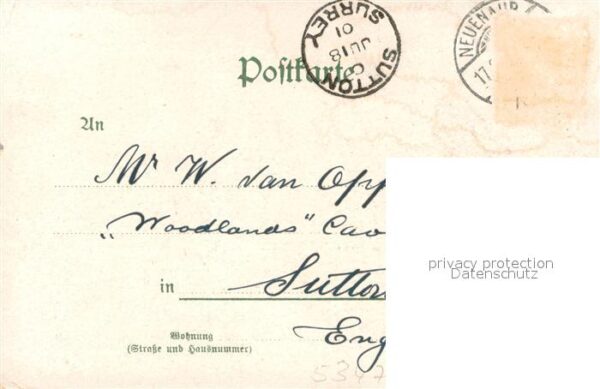 SUTTON
SURREY
C
JU 18
01
NEUENAHR
17.
Postkarte
An
Mr W. van Opp
„Woodlands" Cav
in Sutton
Wohnung
(Straße und Hausnummer)
Eng
privacy protection
Datenschutz